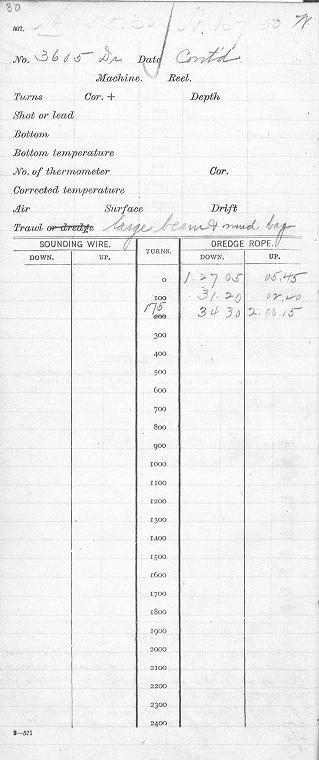 30
507.
No. 3605 Dr Date Cont'd
Machine. Reel.
Turns Cor. + Depth
Shot or lead
Bottom
Bottom temperature
No. of thermometer Cor.
Corrected temperature
Air Surface Drift
Trawl or dredge large beam & mud bag
SOUNDING WIRE. TURNS. DREDGE ROPE.
DOWN. UP. DOWN. UP.
0 1.27.05 05.45
100 31.20 02.40
175
200 34.30 2.00.15
300
400
500
600
700
800
900
1000
1100
1200
1300
1400
1500
1600
1700
1800
1900
2000
2100
2200
2300
2400
2—571